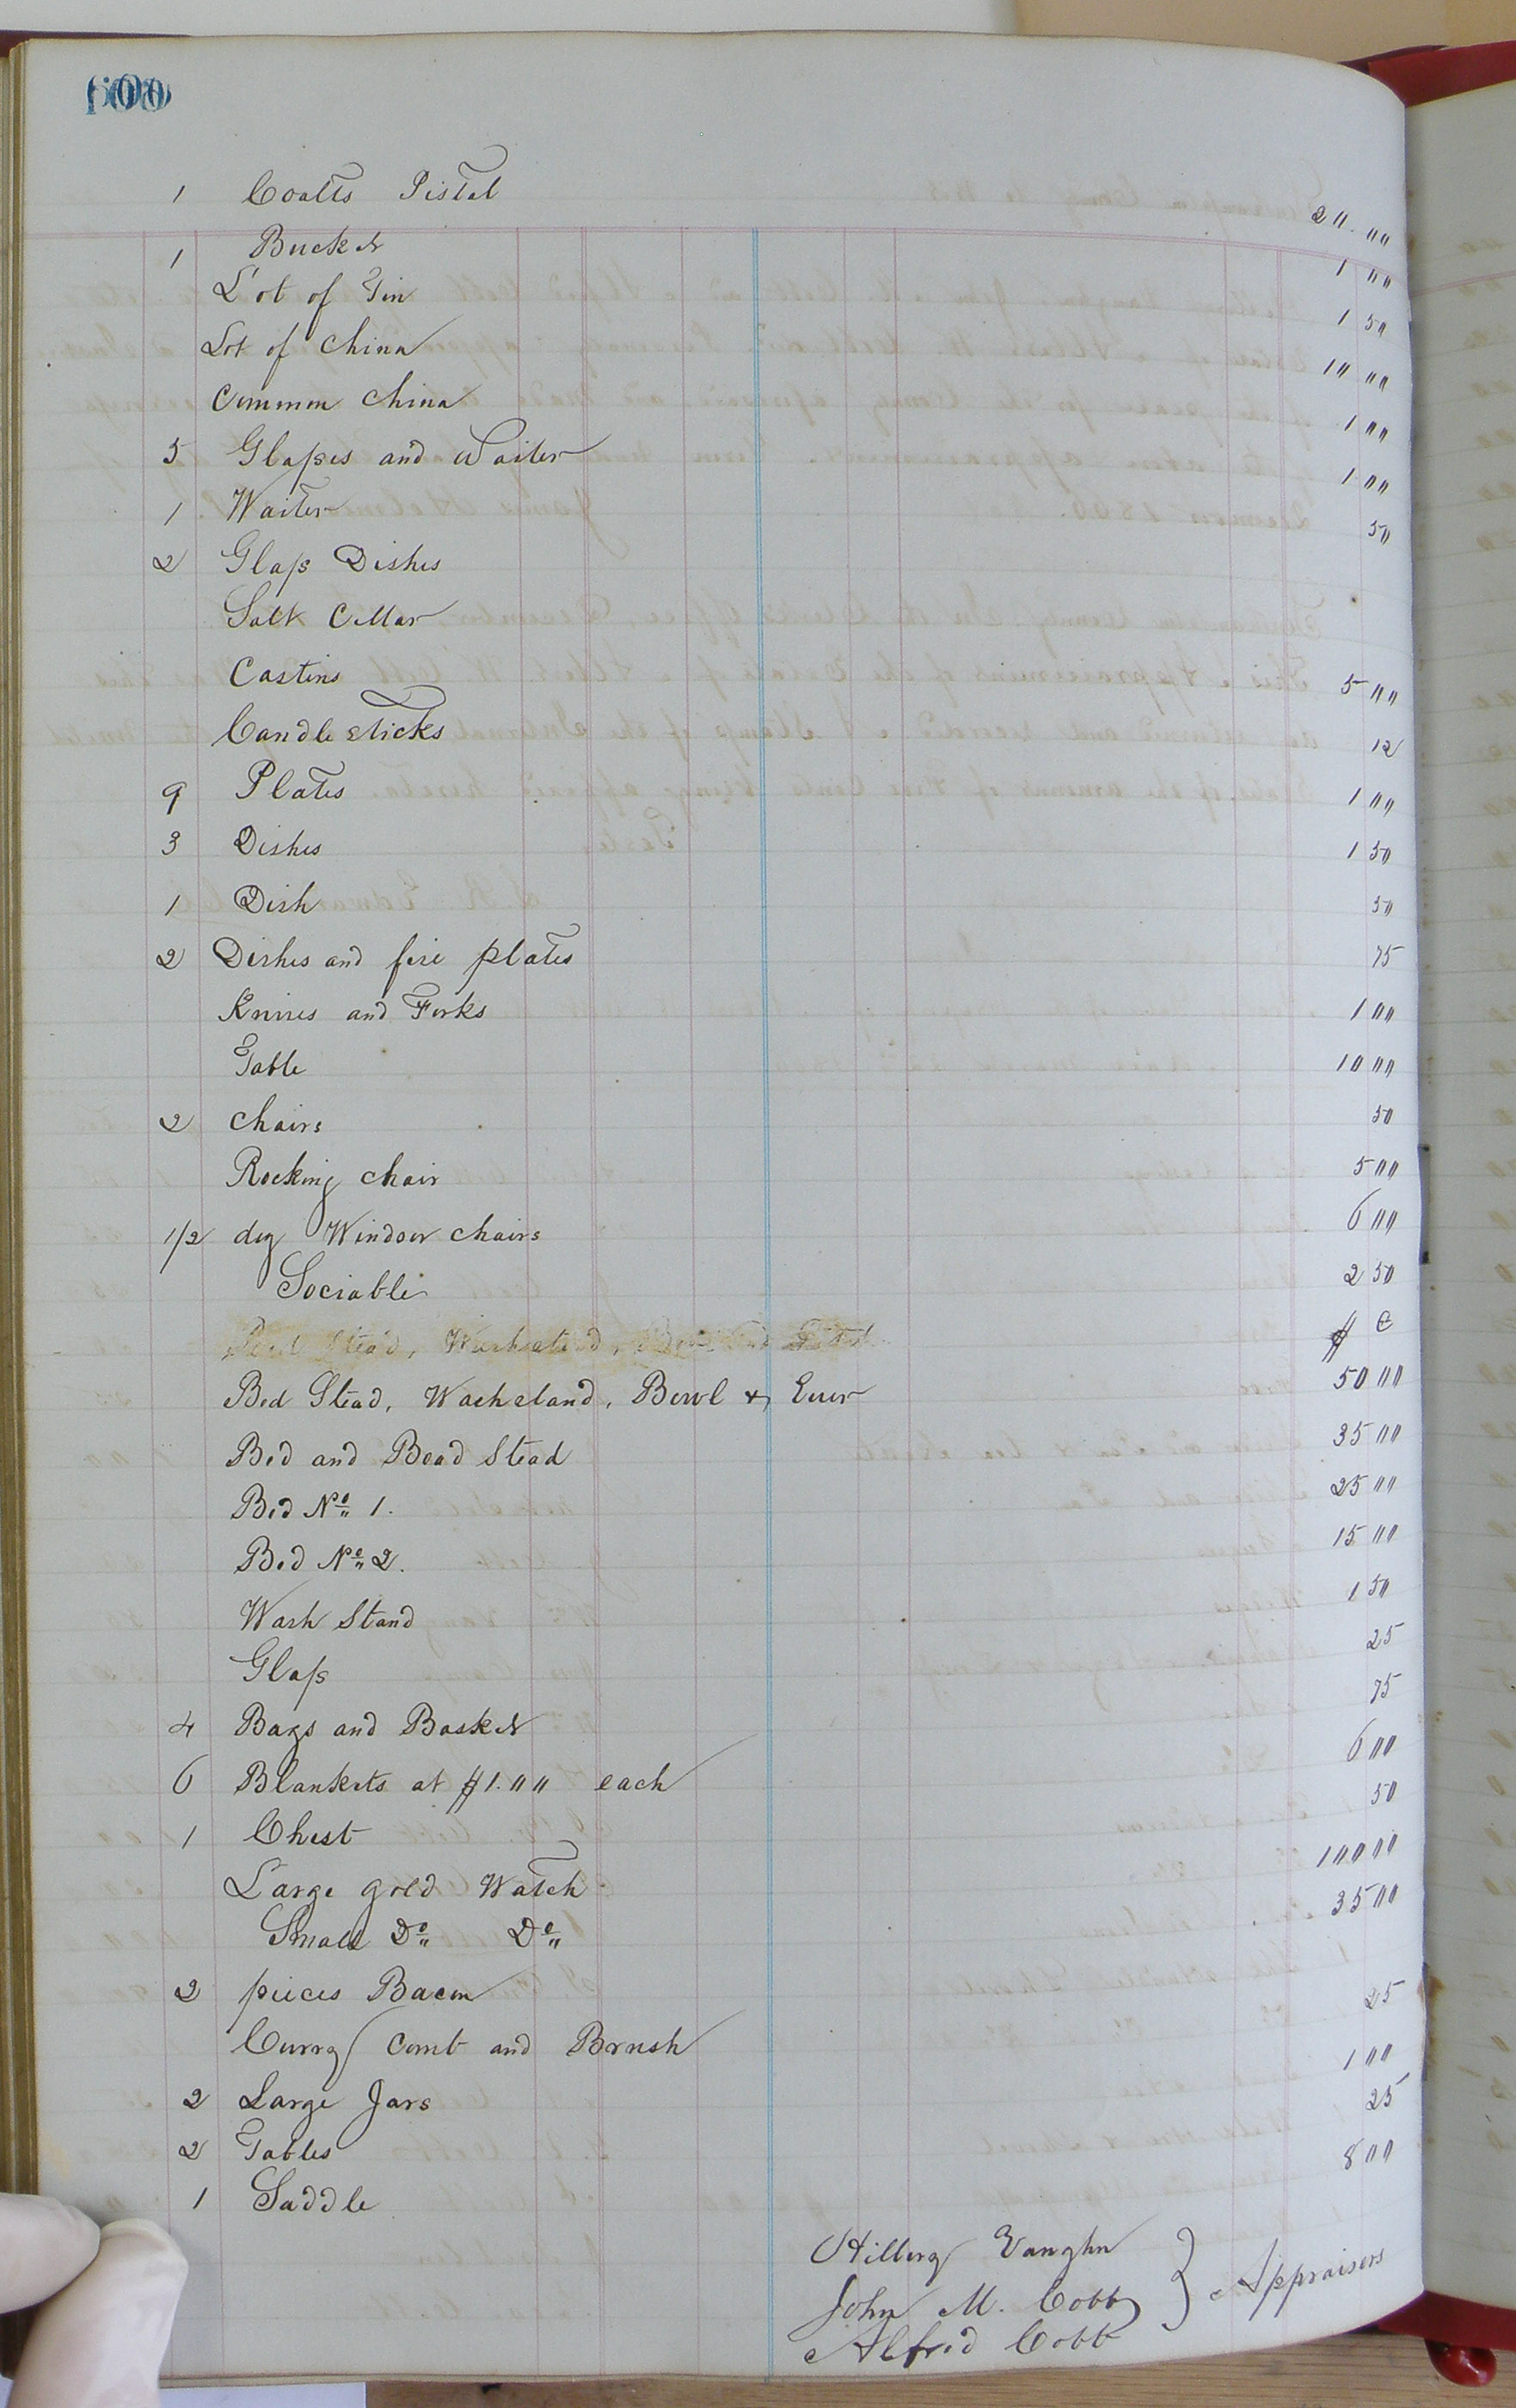 600
1 Coalts Pistal 20.00
1 Bucket 1 00
Lot of Tin 1 50
Lot of China 10 00
Common China 1 00
5 Glasses and Waiter 1 00
1 Waiter 50
2 Glass Dishes
Salt Cellar
Castins 5 00
Candle sticks 12
9 Plates 1 00
3 Dishes 1 50
1 Dish 50
2 Dishes and five plates 75
Knives and Forks 1 00
Table 10 00
2 Chairs 50
Rocking Chair 5 00
1/2 doz Windsor Chairs 6 00
Sociable 2 50
$ C
Bed Stead, Washstand, Bowl & Ewer 50 00
Bed and Bead Stead 35 00
Bed No 1. 25 00
Bed No 2. 15 00
Wash Stand 1 50
Glass 25
4 Bags and Basket 75
6 Blankets at $1.00 each 6 00
1 Chest 50
Large gold Watch 100 00
Small Do Do 35 00
2 pieces Bacon
Curry Comb and Brush 25
2 Large Jars 1 00
2 Tables 25
1 Saddle 8 00
Hillery Vaughn
John M. Cobb } Appraisers
Alfred Cobb